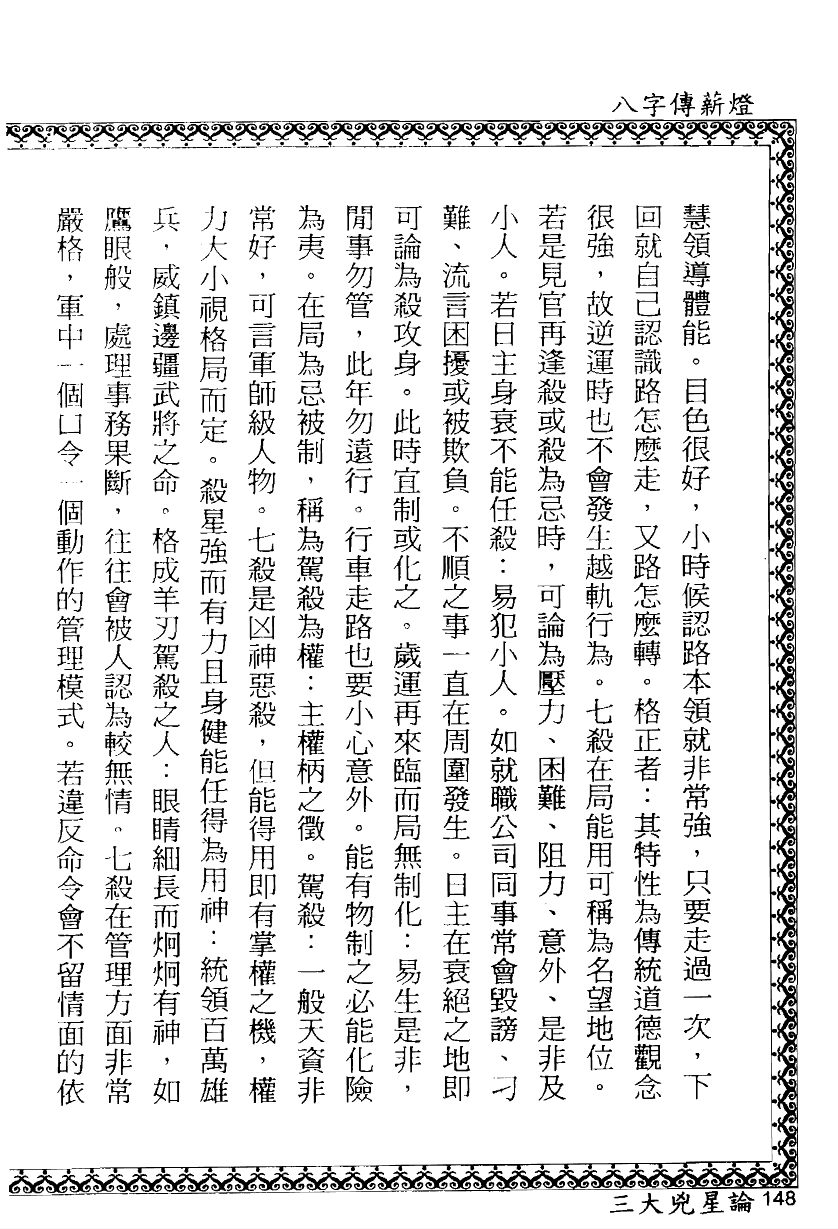 八字傳薪燈
慧領導體能。目色很好，小時候認路本領就非常強，只要走過一次，下
回就自己認識路怎麼走，又路怎麼轉。格正者：其特性為傳統道德觀念
很強，故逆運時也不會發生越軌行為。七殺在局能用可稱為名望地位。
若是見官再逢殺或殺為忌時，可論為壓力、困難、阻力、意外、是非及
小人。若日主身衰不能任殺：易犯小人。如就職公司同事常會毀謗、刁
難、流言困擾或被欺負。不順之事一直在周圍發生。日主在衰絕之地即
可論為殺攻身。此時宜制或化之。歲運再來臨而局無制化：易生是非，
閒事勿管，此年勿遠行。行車走路也要小心意外。能有物制之必能化險
為夷。在局為忌被制，稱為駕殺為權：主權柄之徵。駕殺：一般天資非
常好，可言軍師級人物。七殺是凶神惡殺，但能得用即有掌權之機，權
力大小視格局而定。殺星強而有力且身健能任得為用神：統領百萬雄
兵，威鎮邊疆武將之命。格成羊刃駕殺之人：眼睛細長而炯炯有神，如
鷹眼般，處理事務果斷，往往會被人認為較無情。七殺在管理方面非常
嚴格，軍中一個口令一個動作的管理模式。若違反命令會不留情面的依
三大兇星論 148